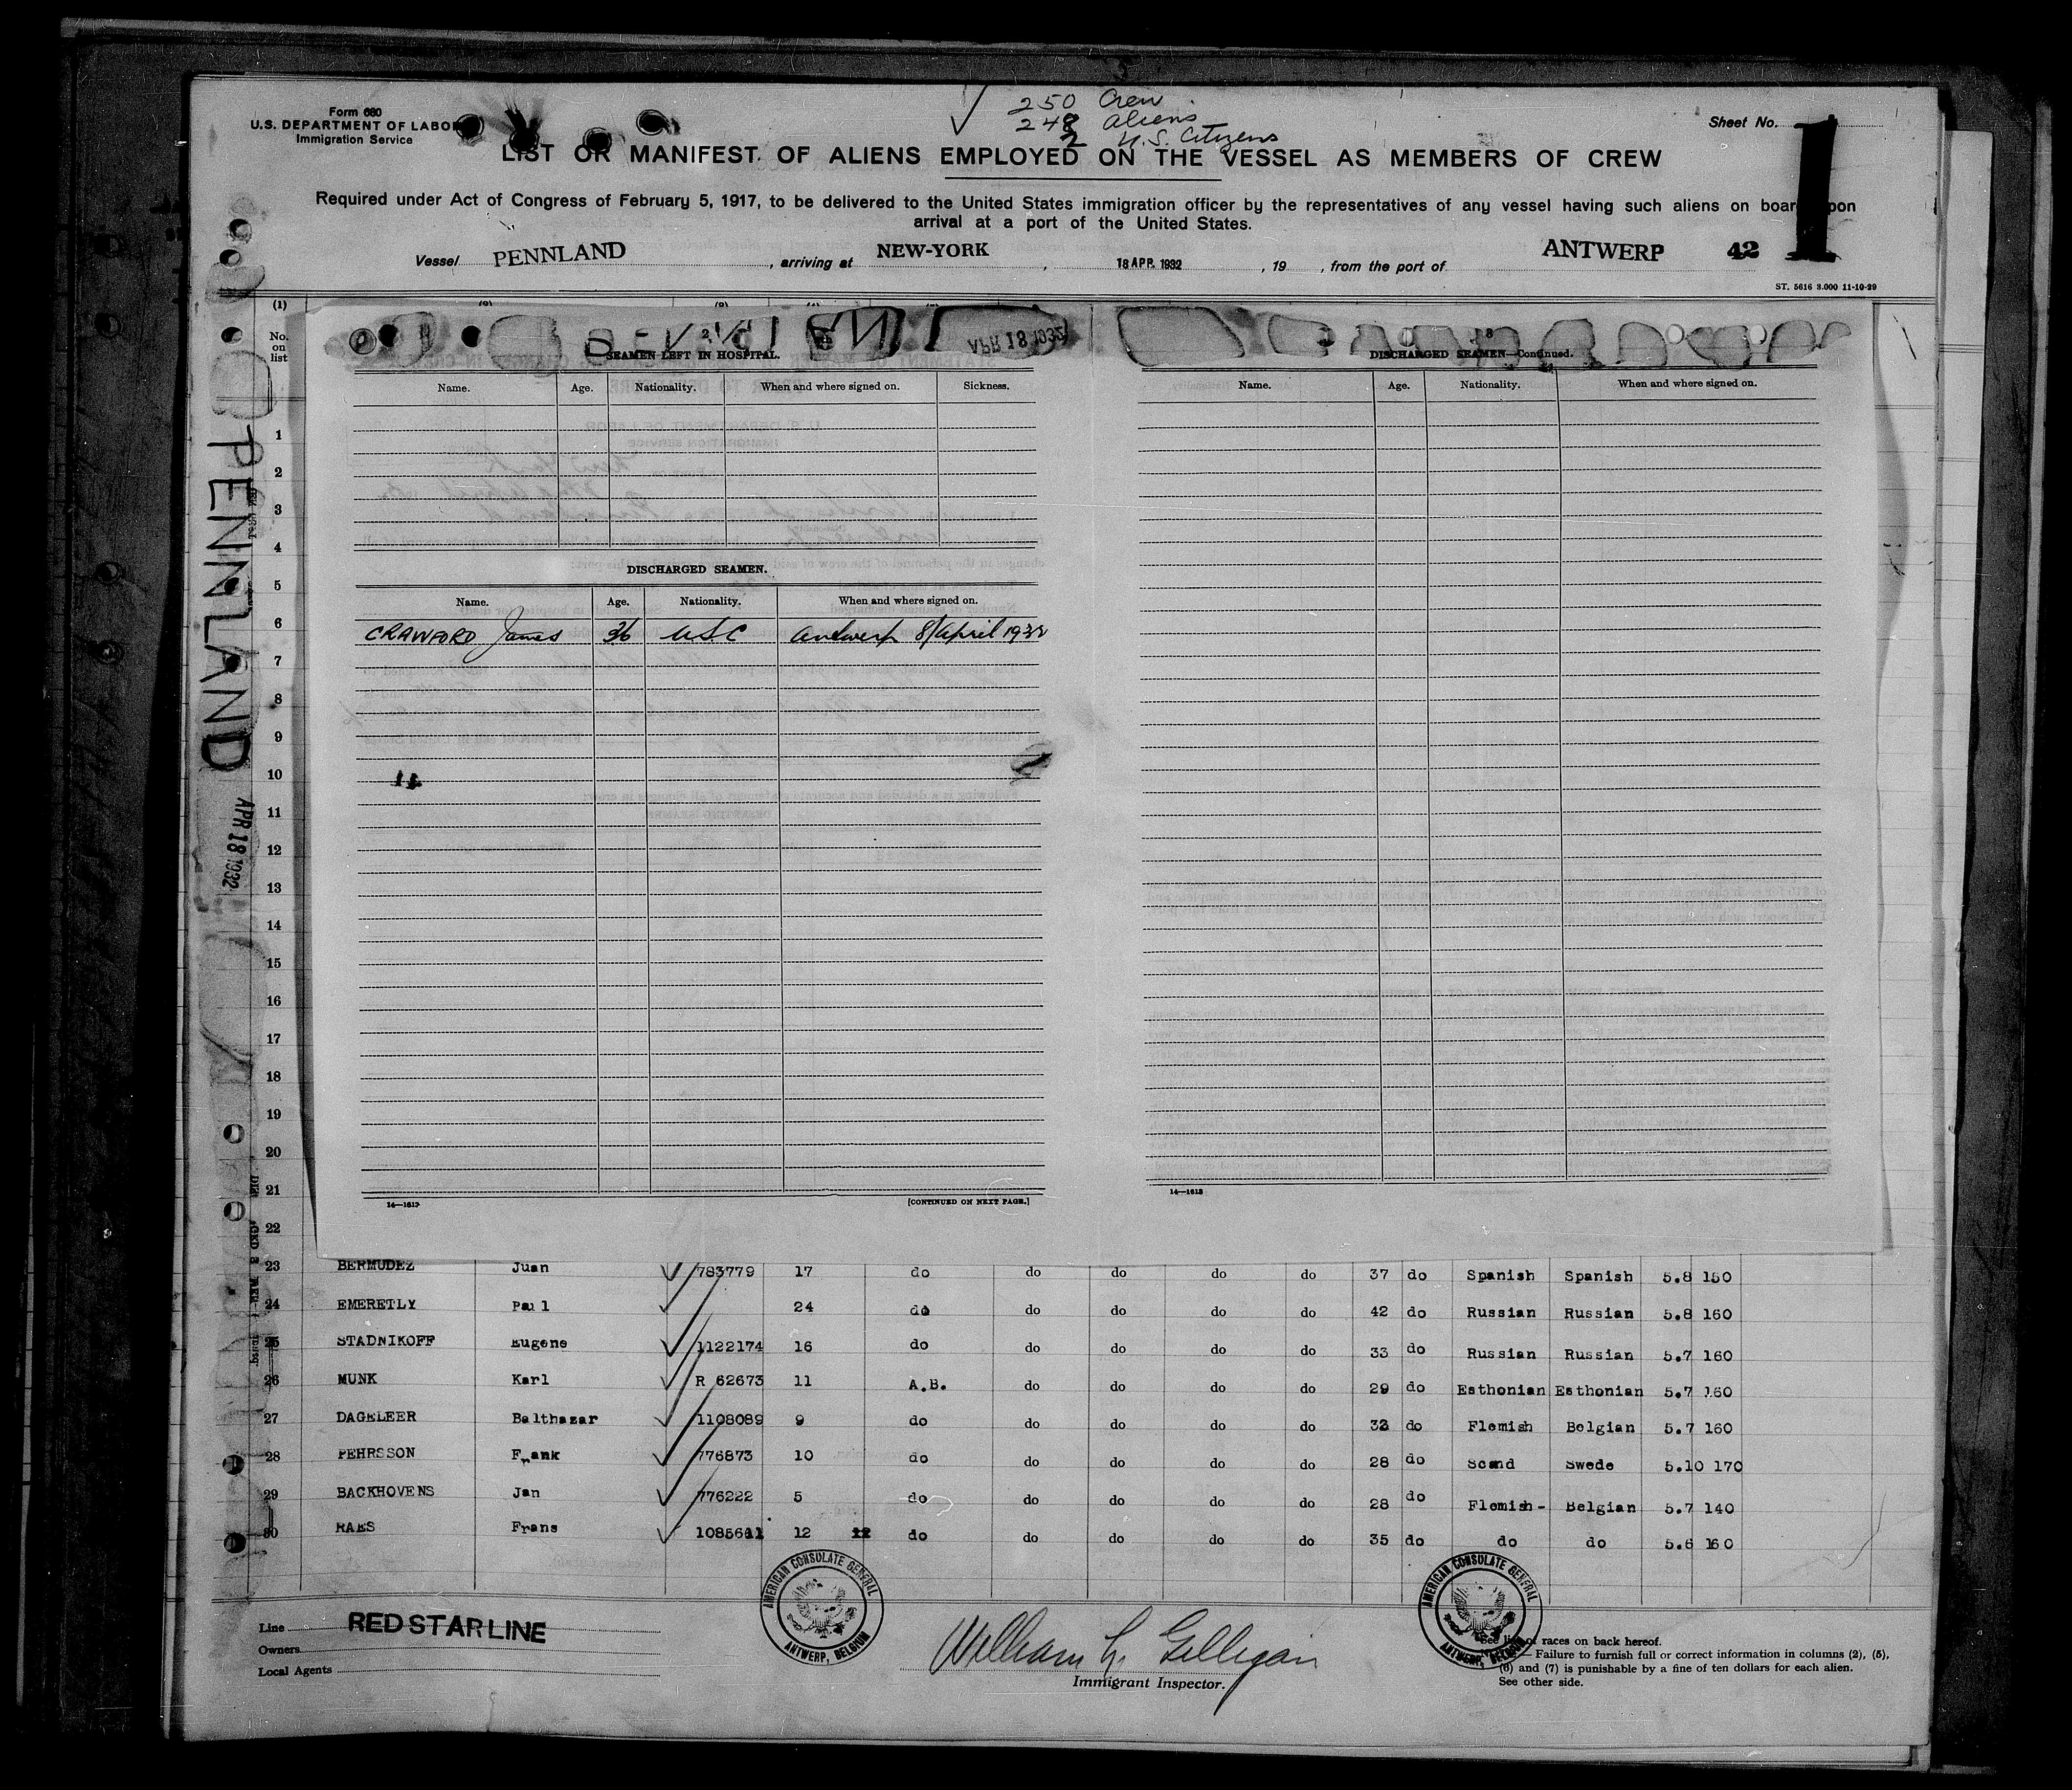 250 Crew
248 aliens
2 U.S. Citizens
Form 680
U.S. DEPARTMENT OF LABOR
Immigration Service
Sheet No. 1
LIST OR MANIFEST OF ALIENS EMPLOYED ON THE VESSEL AS MEMBERS OF CREW
Required under Act of Congress of February 5, 1917, to be delivered to the United States immigration officer by the representatives of any vessel having such aliens on board upon
arrival at a port of the United States.
Vessel PENNLAND, arriving at NEW-YORK, 18 APR. 1932, 19 , from the port of ANTWERP 42
ST. 5616 3.000 11-10-29
(1)
No. on list
PENNLAND
APR 18 1932
APR 18 1932
SEAMEN LEFT IN HOSPITAL.
Name. Age. Nationality. When and where signed on. Sickness.
DISCHARGED SEAMEN.
Name. Age. Nationality. When and where signed on.
CRAWFORD James 36 USC Antwerp 8/April 1932
14—1613 [CONTINUED ON NEXT PAGE.]
DISCHARGED SEAMEN—Continued.
Name. Age. Nationality. When and where signed on.
14—1613
1
2
3
4
5
6
7
8
9
10
11
12
13
14
15
16
17
18
19
20
21
22
23 BERMUDEZ Juan 783779 17 do do do do do 37 do Spanish Spanish 5.8 150
24 EMERETLY Paul 24 do do do do do 42 do Russian Russian 5.8 160
25 STADNIKOFF Eugene 1122174 16 do do do do do 33 do Russian Russian 5.7 160
26 MUNK Karl R 62673 11 A.B. do do do do 29 do Esthonian Esthonian 5.7 160
27 DAGELEER Balthazar 1108089 9 do do do do do 32 do Flemish Belgian 5.7 160
28 PEHRSSON Frank 776873 10 do do do do do 28 do Scand Swede 5.10 170
29 BACKHOVENS Jan 776222 5 do do do do do 28 do Flemish- Belgian 5.7 140
30 RAES Frans 1085611 12 12 do do do do do 35 do do do 5.6 160
Line RED STAR LINE
Owners
Local Agents
AMERICAN CONSULATE GENERAL
ANTWERP, BELGIUM
William L. Gilligan
Immigrant Inspector.
AMERICAN CONSULATE GENERAL
ANTWERP, BELGIUM
See list of races on back hereof.
— Failure to furnish full or correct information in columns (2), (5),
(6) and (7) is punishable by a fine of ten dollars for each alien.
See other side.